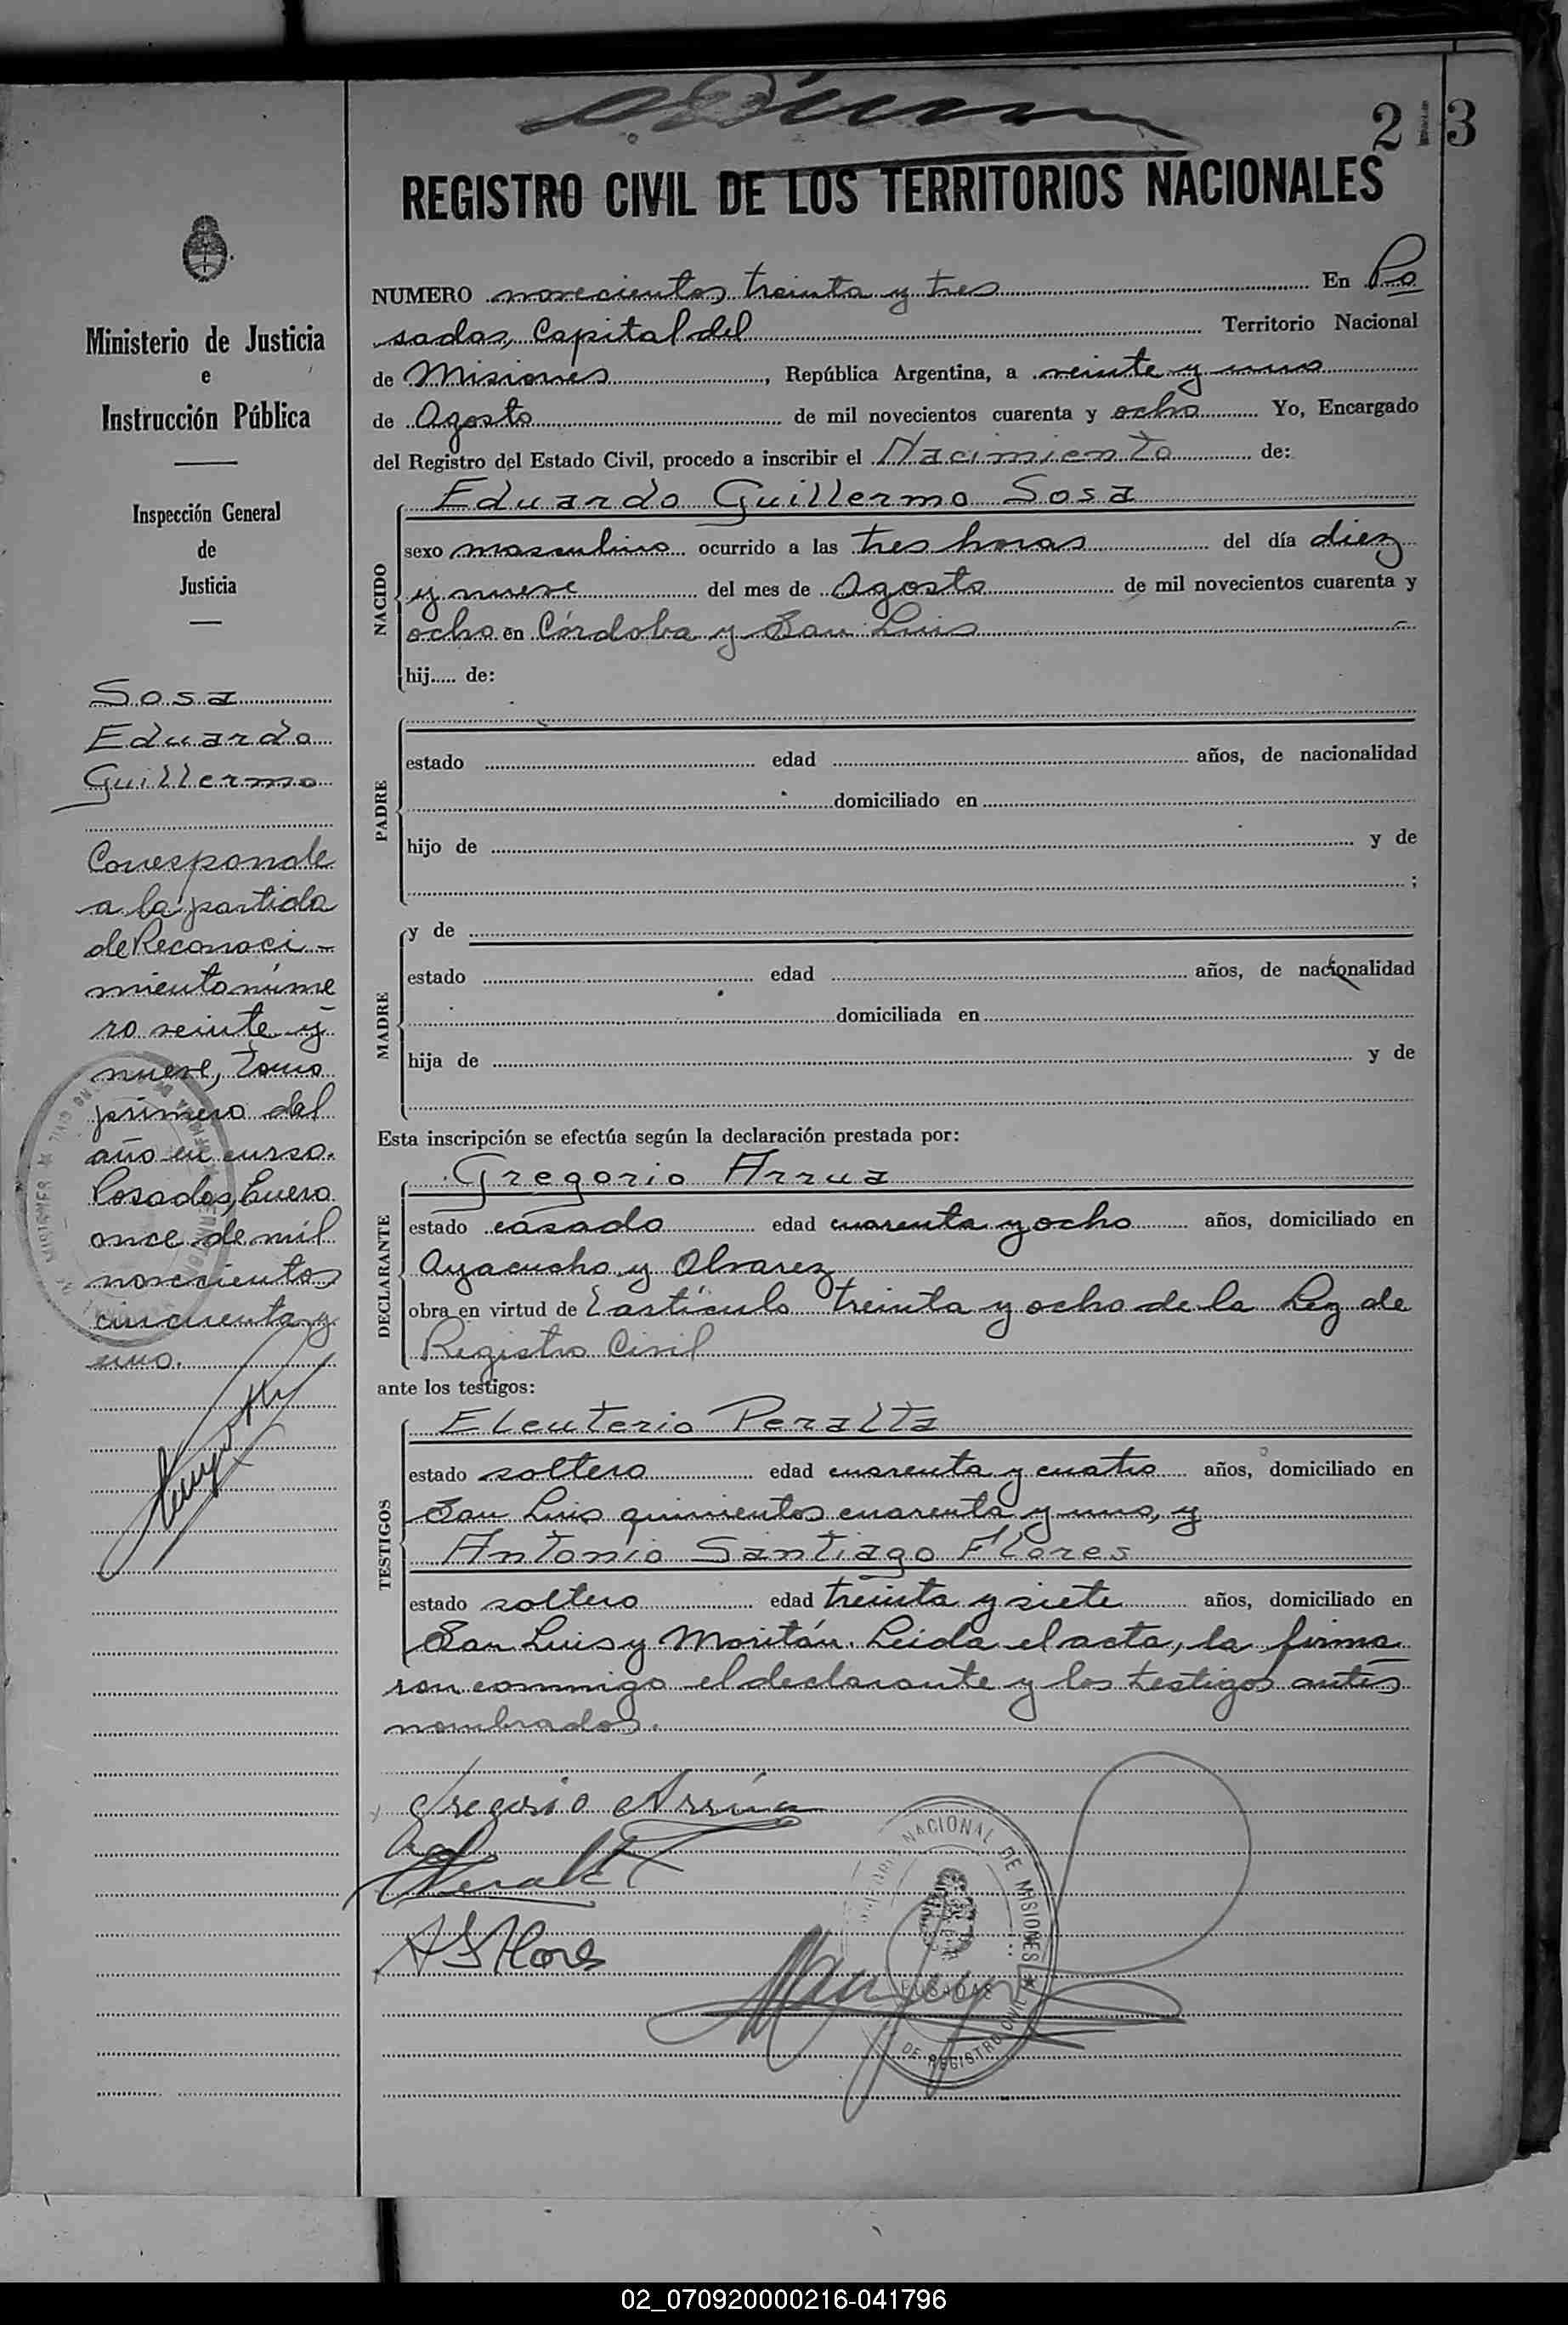 2 3
REGISTRO CIVIL DE LOS TERRITORIOS NACIONALES
NUMERO novecientos treinta y tres En Po
sadas, Capital del Territorio Nacional
de Misiones, República Argentina, a veinte y uno
de Agosto de mil novecientos cuarenta y ocho Yo, Encargado
del Registro del Estado Civil, procedo a inscribir el Nacimiento de:
NACIDO
Eduardo Guillermo Sosa
sexo masculino ocurrido a las tres horas del día diez
y nueve del mes de Agosto de mil novecientos cuarenta y
ocho en Córdoba y San Luis
hij..... de:
PADRE
estado edad años, de nacionalidad
domiciliado en
hijo de y de
;
MADRE
y de
estado edad años, de nacionalidad
domiciliada en
hija de y de
Esta inscripción se efectúa según la declaración prestada por:
DECLARANTE
Gregorio Arrua
estado casado edad cuarenta y ocho años, domiciliado en
Ayacucho y Alvarez
obra en virtud de l artículo treinta y ocho de la Ley de
Registro Civil
ante los testigos:
TESTIGOS
Eleuterio Peralta
estado soltero edad cuarenta y cuatro años, domiciliado en
San Luis quinientos cuarenta y uno, y
Antonio Santiago Flores
estado soltero edad treinta y siete años, domiciliado en
San Luis y Moritán. Leída el acta, la firma
ron conmigo el declarante y los testigos antes
nombrados.
Gregorio Arrúa
Peralta
A S Flores
NACIONAL DE MISIONES
POSADAS
DE REGISTRO CIVIL
Ministerio de Justicia
e
Instrucción Pública
Inspección General
de
Justicia
Sosa
Eduardo
Guillermo
Corresponde
a la partida
de Reconoci-
miento núme
ro veinte y
nueve, tomo
primero del
año en curso.
Posadas, Enero
once de mil
novecientos
cincuenta y
uno.
02_070920000216-041796